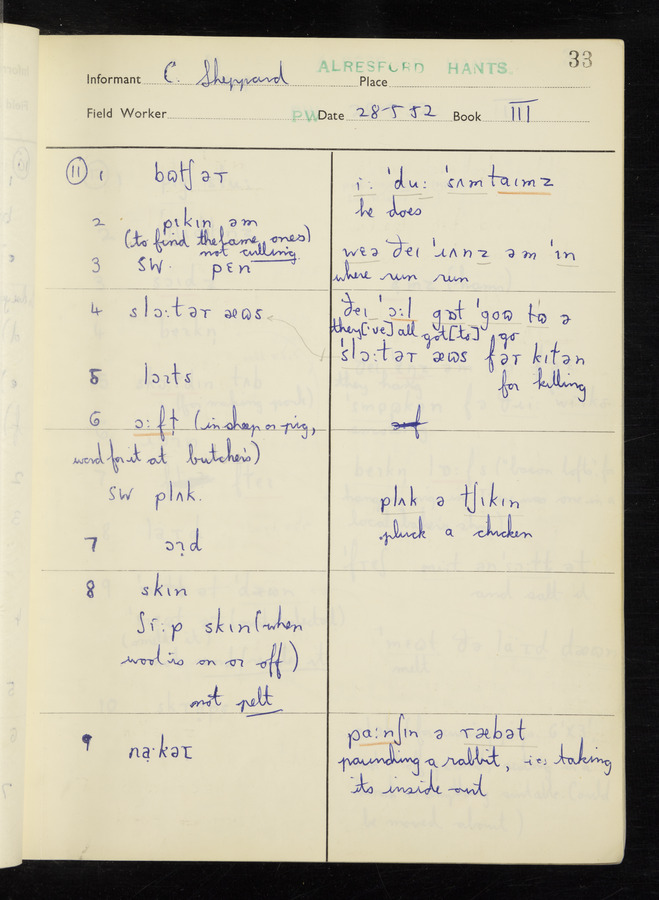 33
ALRESFORD HANTS.
Informant C. Sheppard Place
Field Worker PW Date 28-5-52 Book III
(11) 1 bɷtʃəɾ
i: ˈdu: ˈsʌmtaɪmz
he does
2 pɪkɪn əm
(to find the lame ones)
not culling
3 SW. pɛn
wɛə ðeɪ ˈɪʌnz əm ˈɪn
where run run
4 slɔ:tər æɷs
ðeɪ ˈɔ:l gɒt ˈgoɷ tə ə
they['ve] all got [to] go
ˈslɔ:tər æɷs fər kɪlən
for killing
5 lɔɪts
6 ɔ:fḷ (in sheep or pig,
word for it at butcher's)
SW plʌk.
plʌk ə tʃɪkɪn
pluck a chicken
7 ɔʔd
8 skɪn
ʃi:p skɪn (when
wool is on or off)
not pelt
9 nạ·kəɾ
pa:nʃɪn ə ræbət
paunching a rabbit, i.e. taking
its inside out